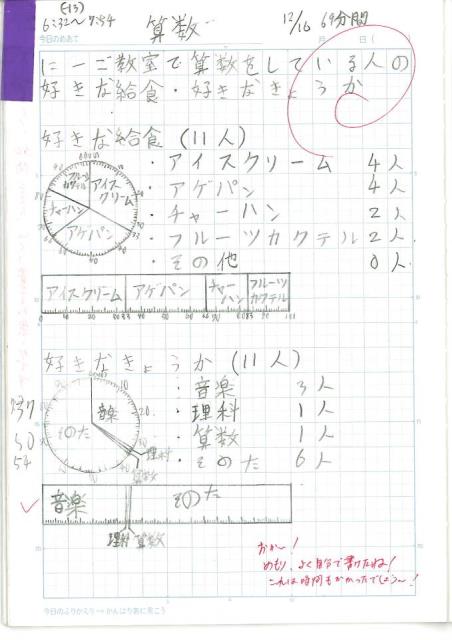 (-13)
6:32〜7:54 算数 12/16 69分間
今日のめあて 月 日( )
に一ご教室で算数をしている人の
好きな給食・好きなきょうか
好きな給食(11人)
・アイスクリーム 4人
・アゲパン 4人
・チャーハン 2人
・フルーツカクテル 2人
・その他 0人
フルーツカクテル
アイスクリーム
チャーハン
アゲパン
アイスクリーム アゲパン チャーハン フルーツカクテル
好きなきょうか(11人)
・音楽 3人
・理科 1人
・算数 1人
・そのた 6人
10
20
音楽
そのた
理科
算数
737
50
54
音楽 そのた
理科 算数
おか〜!
めもり、よく自分で書けたね!
これは時間もかかったでしょう〜!
今日のふりかえり→かんばりあに見こう